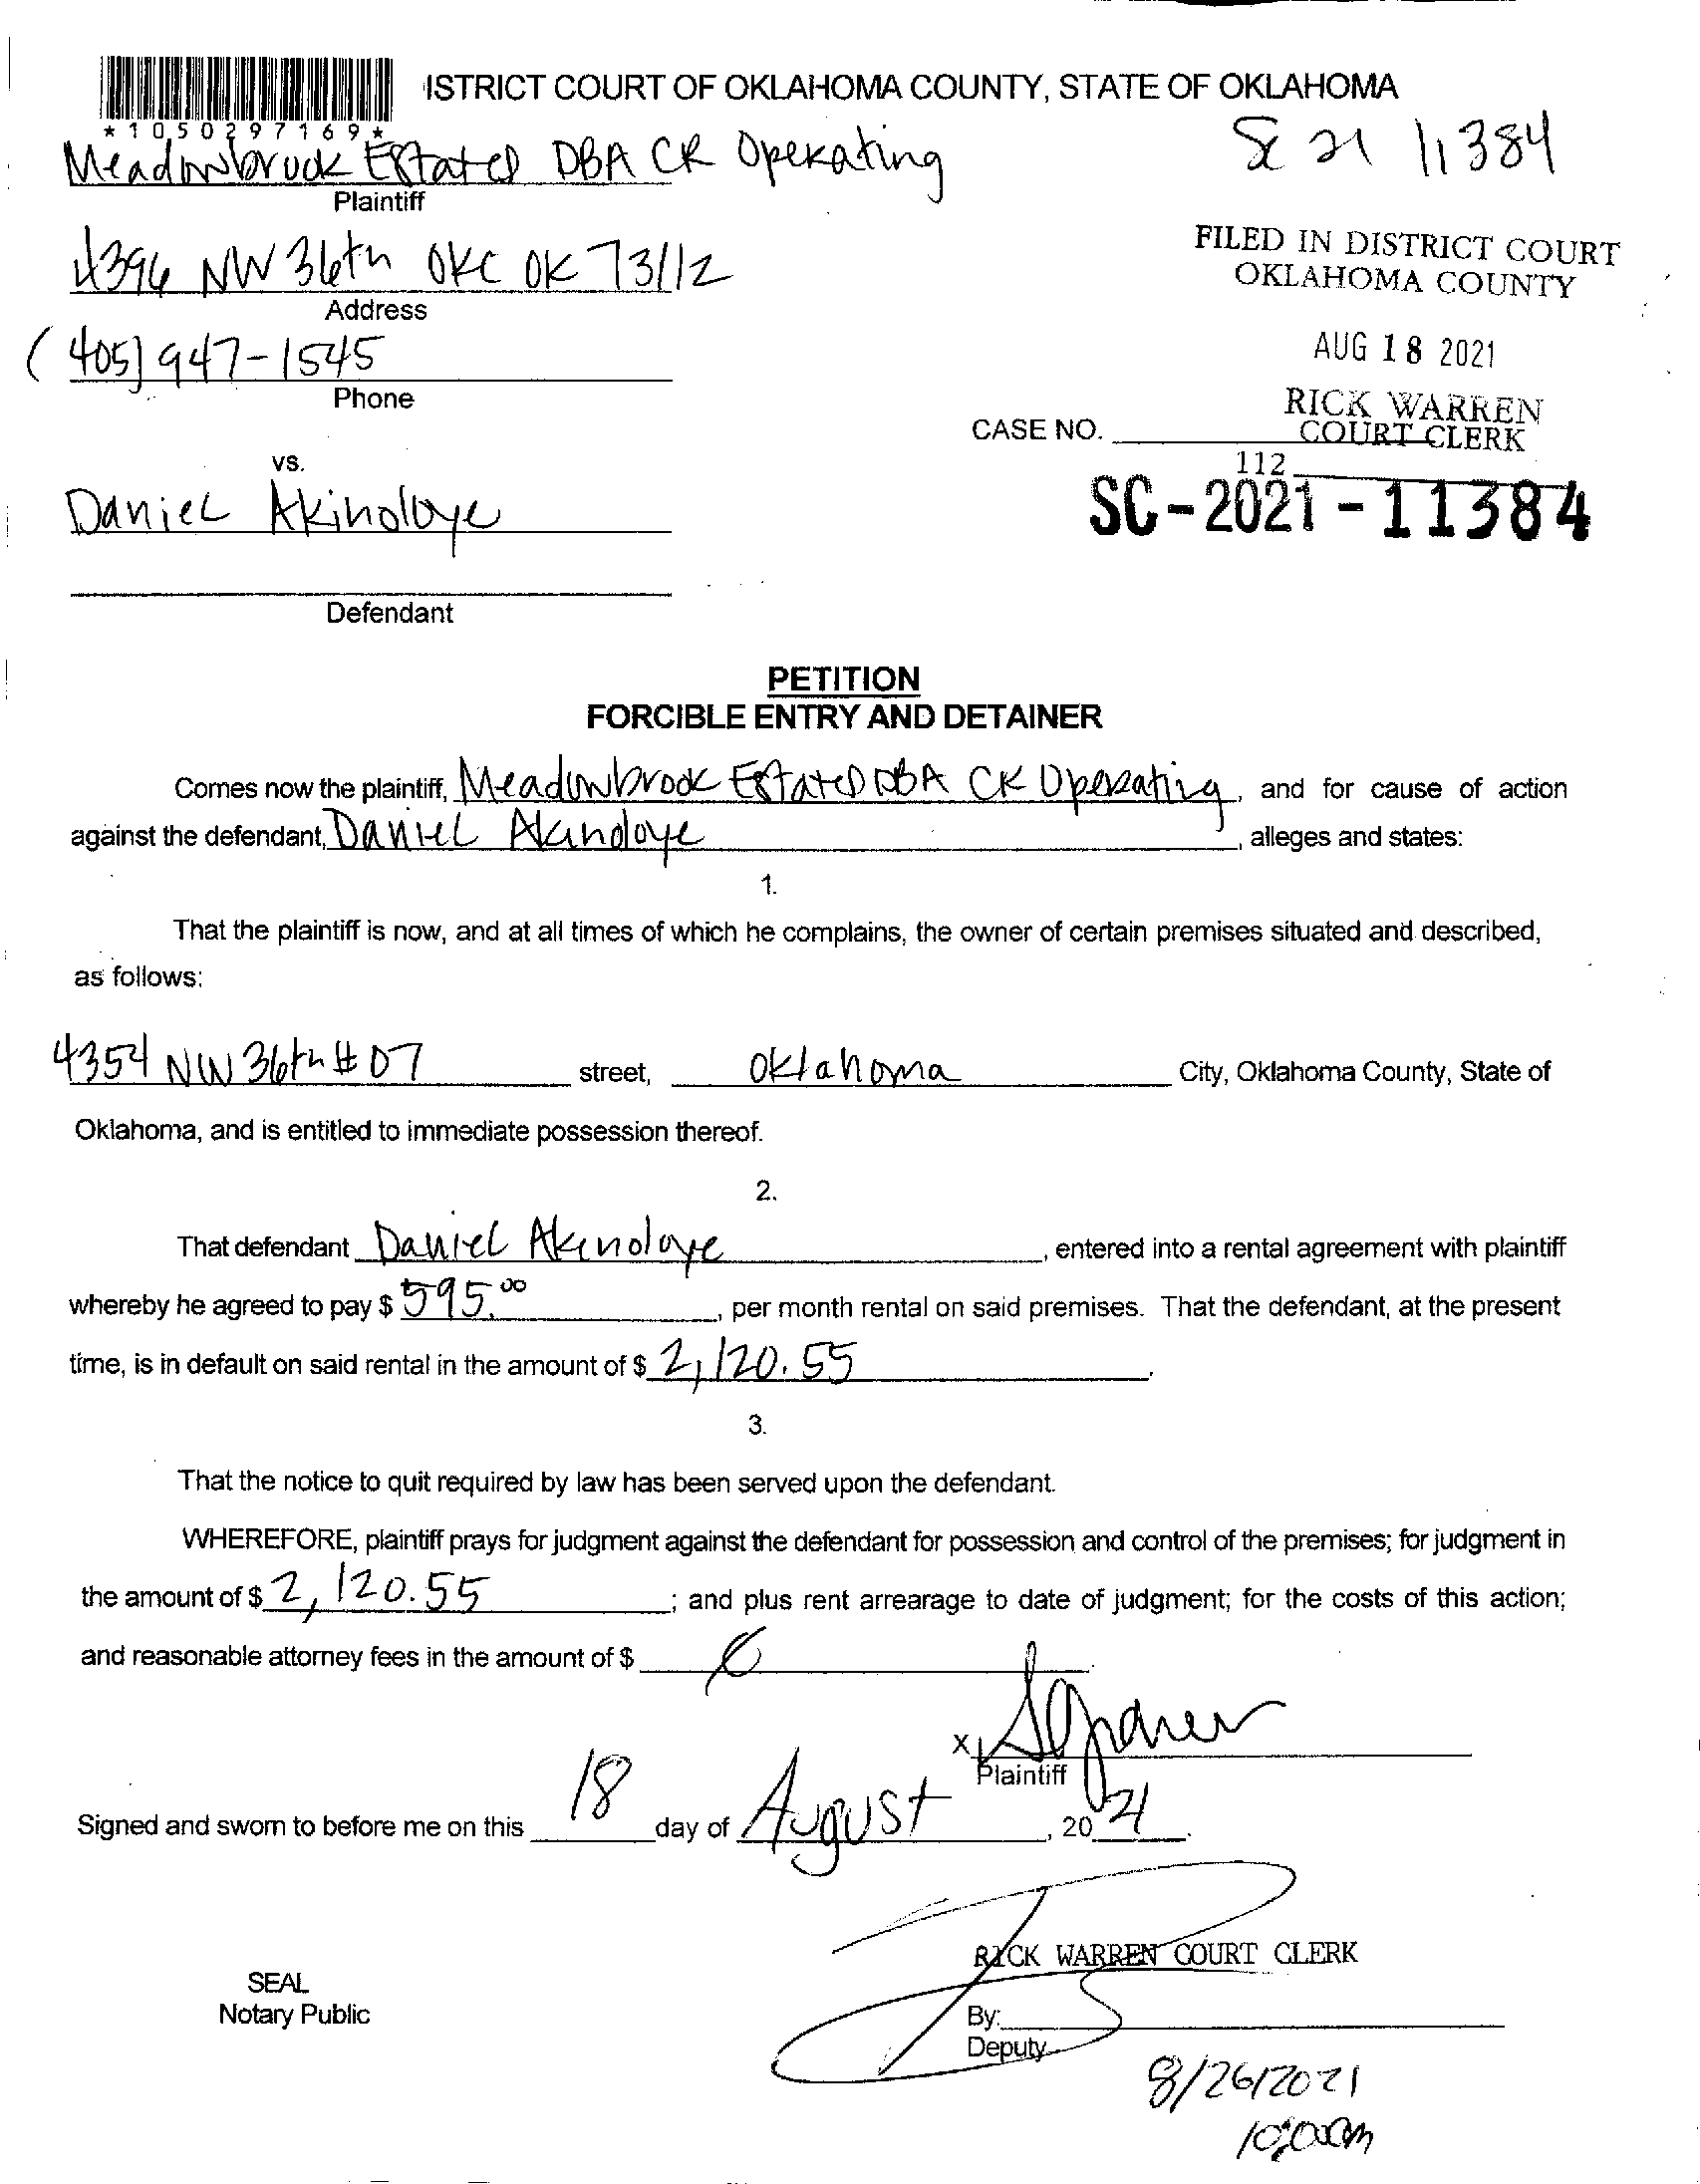 ISTRICT COURT OF OKLAHOMA COUNTY, STATE OF OKLAHOMA
*1050297169*
SC 21 11384
Meadowbrook Estates DBA CR Operating
Plaintiff
4396 NW 36th OKC OK 73112
Address
FILED IN DISTRICT COURT
OKLAHOMA COUNTY
(405) 947-1545
Phone
AUG 18 2021
RICK WARREN
COURT CLERK
CASE NO.
112
vs.
SC-2021-11384
Daniel Akinoloye
Defendant
PETITION
FORCIBLE ENTRY AND DETAINER
Comes now the plaintiff, Meadowbrook Estates DBA CR Operating, and for cause of action
against the defendant, Daniel Akinoloye, alleges and states:
1.
That the plaintiff is now, and at all times of which he complains, the owner of certain premises situated and described,
as follows:
4354 NW 36th # 07 street, Oklahoma City, Oklahoma County, State of
Oklahoma, and is entitled to immediate possession thereof.
2.
That defendant Daniel Akinoloye, entered into a rental agreement with plaintiff
whereby he agreed to pay $ 595.00, per month rental on said premises. That the defendant, at the present
time, is in default on said rental in the amount of $ 2,120.55.
3.
That the notice to quit required by law has been served upon the defendant.
WHEREFORE, plaintiff prays for judgment against the defendant for possession and control of the premises; for judgment in
the amount of $ 2,120.55; and plus rent arrearage to date of judgment; for the costs of this action;
and reasonable attorney fees in the amount of $
X
Plaintiff
Signed and sworn to before me on this 18 day of August, 20 21.
RICK WARREN COURT CLERK
SEAL
Notary Public
By:
Deputy
8/26/2021
10:00am